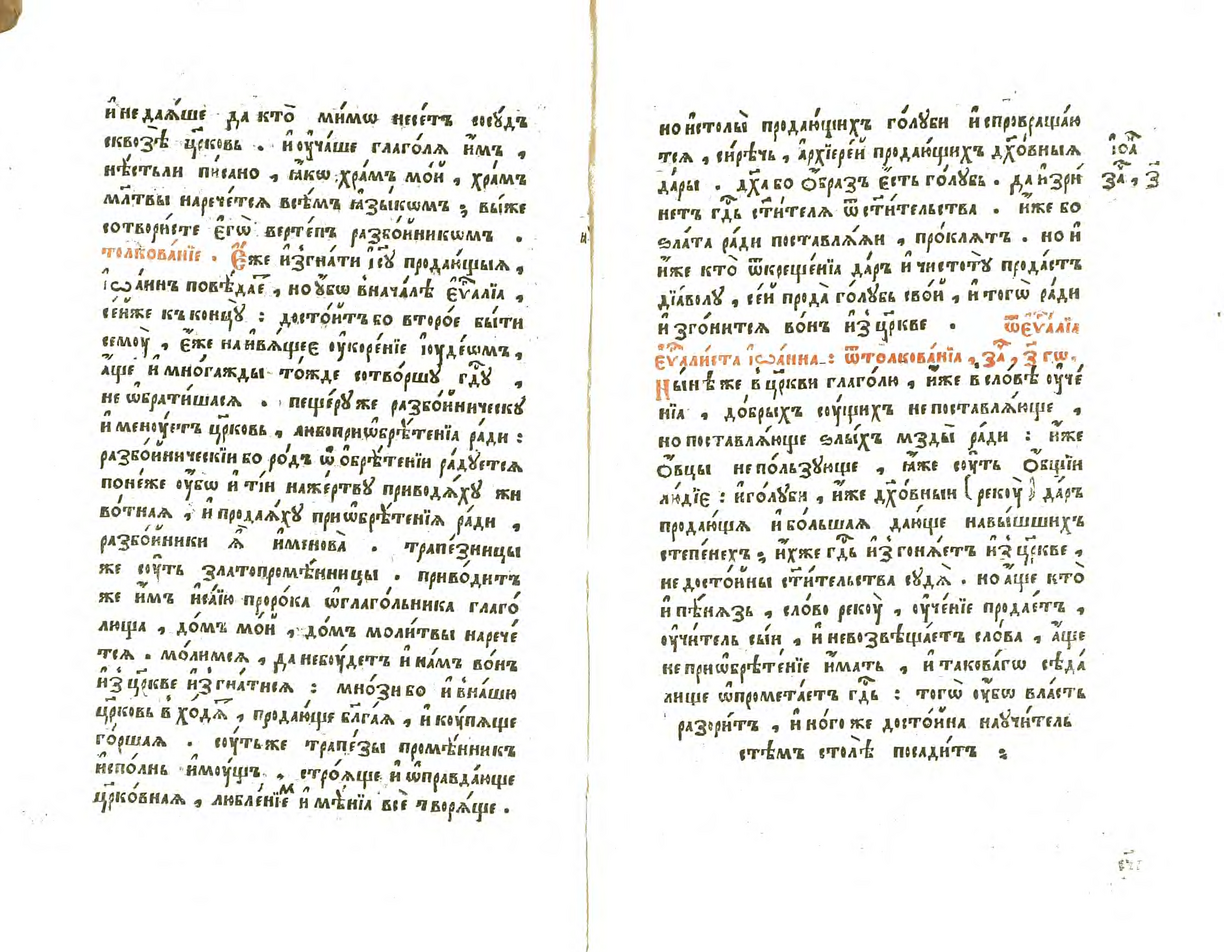 и҆ недаѧ́ше да кто̀ ми́мѡ несе́тъ сосу́дъ
сквозѣ̀ цр҃ковь . и҆ ᲂу҆ча́ше глаго́лѧ и҆̀мъ ,
нѣ́стьли пи́сано , ꙗ҆́кѡ хра́мъ мо́й , хра́мъ
мл҃твы нарече́тсѧ всѣ́мъ ꙗ҆зы́кѡмъ ; вы́же
сотвори́сте є҆го̀ верте́пъ разбо́йникѡмъ .
толкова́нїе . Є҆́же и҆згна́ти і҆с҃у продаю́щыѧ ,
і҆ѡа́ннъ повѣ́даетъ , но ᲂу҆́бѡ внача́лѣ є҆ѵⷢ҇алїа ,
се́йже къ концу̀ : досто́итъ бо второ́е бы́ти
семоу̀ , є҆́же наивѧ́щее ᲂу҆коре́нїе і҆ꙋде́ѡмъ ,
а҆́ще и҆ мно́гажды то́жде сотво́ршу гдⷭ҇у ,
не ѡ҆брати́шасѧ . пеще́ру же разбо́йническу
и҆менꙋ́етъ цр҃ковь , любоприѡбрѣ́тенїа ра́ди :
разбо́йническїи бо ро́дъ ѡ҆ ѡбрѣ́тенїи ра́дꙋетсѧ
поне́же ᲂу҆́бѡ и҆ ті́и на же́ртву привода́ху жи
во́тнаѧ , и҆ продаѧ́ху приѡбрѣ́тенїѧ ра́ди ,
разбо́йники ѧ҆̀ и҆менова̀ . трапе́зницы
же сꙋ́ть златопромѣ́нницы . приво́дитъ
же и҆̀мъ и҆са́їю проро́ка ѡ҆глаго́льника глаго́
люща , до́мъ мо́й , до́мъ моли́твы нарече́
тсѧ . мо́лимсѧ , да небоу́детъ и҆ на́мъ во́нъ
и҆з̾ цр҃кве и҆згна́тисѧ : мно́зи бо и҆ вна́шю
цр҃ковь вхо́дѧтъ , продаю́ще бл҃га́ѧ , и҆ коупѧ́ще
го́ршаѧ . соу́ть же трапе́зы промѣ́нникъ
и҆спо́лнь и҆моу́щъ , строѧ́ще и҆ ѡ҆правда́юще
цр҃ко́внаѧ , любле́нїемъ и҆мѣ́нїа всѐ творѧ́ще .
но и҆ столы̀ продаю́щихъ го́луби и҆спровраща́ю
тсѧ , си́рѣчь , а҆рхїере́й продаю́щихъ дх҃о́вныѧ
да́ры . дх҃а бо ѻ҆́бразъ є҆́сть го́лубь . да и҆зри́
нетъ гдⷭ҇ь ст҃и́телѧ ѿ ст҃и́тельства . и҆́же бо
ѕла́та ра́ди поставлѧ́ѧи , про́клѧтъ . но и҆
и҆́же кто̀ ѿ креще́нїа да́ръ и҆ чистотꙋ̀ прода́стъ
дїа́волу , се́й прода̀ го́лубь сво́й , и҆ того̀ ра́ди
и҆зго́нитсѧ во́нъ и҆з̾ цр҃кве . ѿ є҆ѵⷢ҇алїа
є҆ѵⷢ҇али́ста і҆ѡа́нна : ѿ толкова́нїа , заⷱ҇ , з҃ гѡ .
Ны́нѣ же в цр҃кви глаго́лю , и҆́же в сло́вѣ ᲂу҆че́
нїа , до́брыхъ соу́щихъ не поставлѧ́юще ,
но поставлѧ́юще ѕлы́хъ мзды̀ ра́ди : и҆́же
ѻ҆́вцы непо́льзующе , ꙗ҆́же соу́ть ѻ҆́бщїи
лю́дїе : и҆ го́луби , и҆́же дх҃о́вный ( рекоу̀ ) да́ръ
продаю́щѧ и҆ бо́льшаѧ даю́ще навы́шшихъ
степе́нехъ ; и҆́хже гдⷭ҇ь и҆згонѧ́етъ и҆з̾ цр҃кве ,
недосто́йны ст҃и́тельства сꙋдѧ̀ . но а҆́ще кто̀
и҆ пѣ́нѧзь , сло́во рекоу̀ , ᲂу҆че́нїе продае́тъ ,
ᲂу҆чи́тель сы́й , и҆ невозвѣща́етъ сло́ва , а҆́ще
не приѡбрѣте́нїе и҆́мать , и҆ такова́гѡ сѣда́
лище ѡ҆промета́етъ гдⷭ҇ь : того̀ ᲂу҆́бѡ вла́сть
разори́тъ , и҆но́го же досто́йна на ᲂучитель
стѣ́мъ столѣ̀ посади́тъ ;
і҆ѡаⷩ҇
заⷱ҇ , з҃